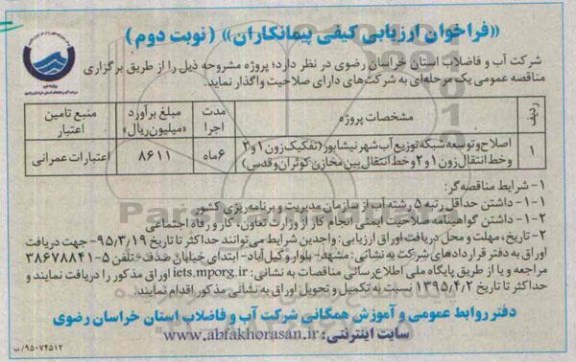 «فراخوان ارزیابی کیفی پیمانکاران» (نوبت دوم)
شرکت آب و فاضلاب استان خراسان رضوی در نظر دارد؛ پروژه مشروحه ذیل را از طریق برگزاری
مناقصه عمومی یک مرحله‌ای به شرکت‌های دارای صلاحیت واگذار نماید.
ردیف | مشخصات پروژه | مدت اجرا | مبلغ برآورد «میلیون ریال» | منبع تامین اعتبار
۱ | اصلاح و توسعه شبکه توزیع آب شهر نیشابور (تفکیک زون ۱ و ۳ و خط انتقال زون ۱ و ۲ و خط انتقال بین مخازن کوثران و قدس) | ۶ماه | ۸۶۱۱ | اعتبارات عمرانی
۱- شرایط مناقصه‌گر:
۱-۱- داشتن حداقل رتبه ۵ رشته آب از سازمان مدیریت و برنامه ریزی کشور
۱-۲- داشتن گواهینامه صلاحیت ایمنی انجام کار از وزارت تعاون، کار و رفاه اجتماعی
۲- تاریخ، مهلت و محل دریافت اوراق ارزیابی: واجدین شرایط می‌توانند حداکثر تا تاریخ ۹۵/۳/۱۹- جهت دریافت
اوراق به دفتر قراردادهای شرکت به نشانی: مشهد- بلوار وکیل‌آباد- ابتدای خیابان صدف- تلفن ۵-۳۸۶۷۸۸۴۱
مراجعه و یا از طریق پایگاه ملی اطلاع رسانی مناقصات به نشانی: iets.mporg.ir اوراق مذکور را دریافت نمایند و
حداکثر تا تاریخ ۱۳۹۵/۴/۲ نسبت به تکمیل و تحویل اوراق به نشانی مذکور اقدام نمایند.
دفتر روابط عمومی و آموزش همگانی شرکت آب و فاضلاب استان خراسان رضوی
سایت اینترنتی: www.abfakhorasan.ir
۹۵۰۷۴۵۱۲/ب